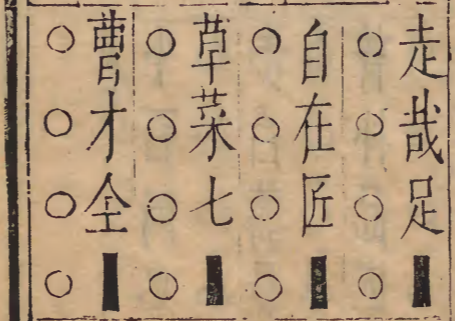 走哉足■
○○○○
自在匠■
○○○○
草菜七■
○○○○
曹才全■
○○○○